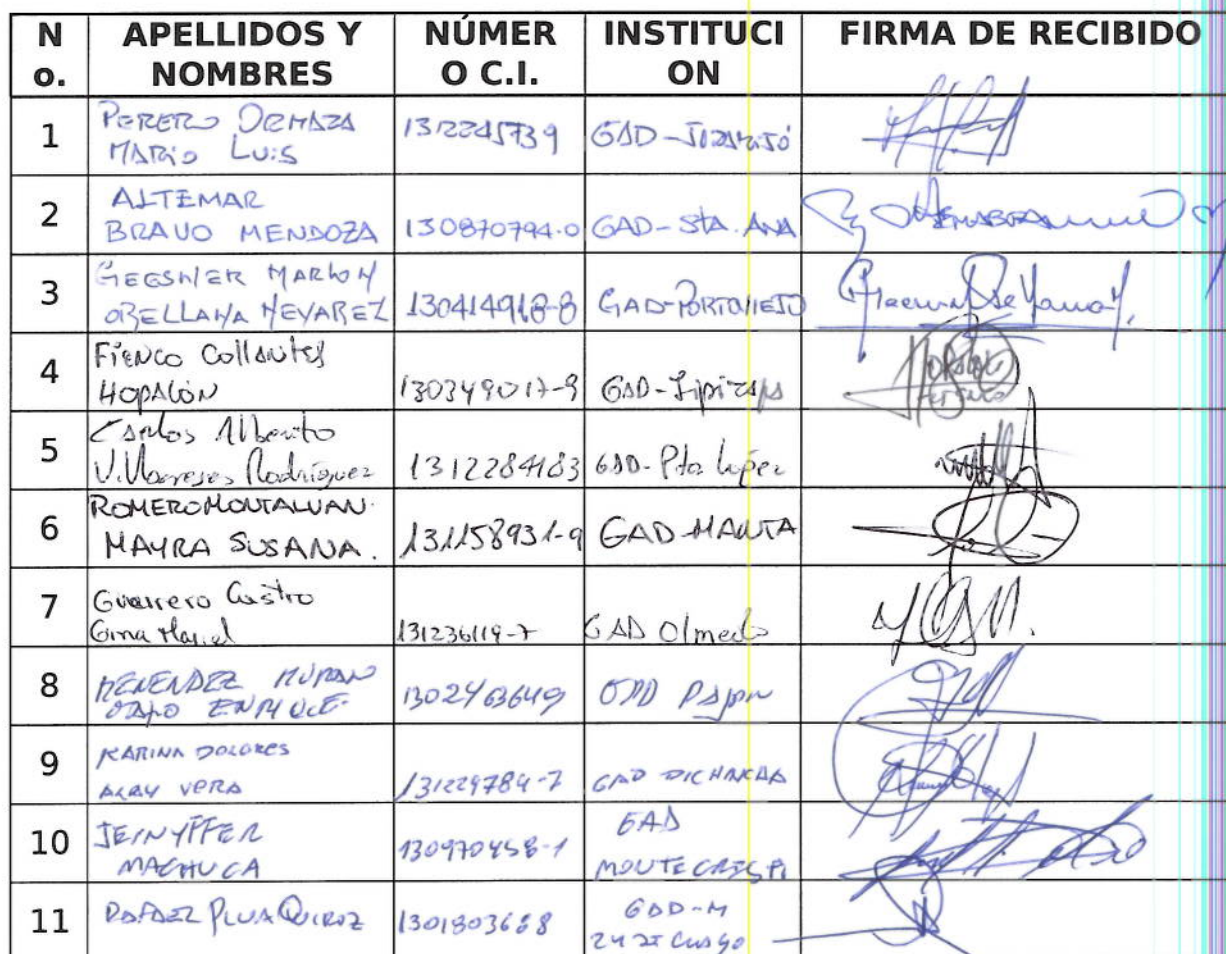 N APELLIDOS Y NÚMER INSTITUCI FIRMA DE RECIBIDO
o. NOMBRES O C.I. ON
1 PERERO ORMAZA
MARIO LUIS 131224573 9 GAD-
2 ALTEMAR
BRAVO MENDOZA 130870794-0 GAD-STA. ANA
3 GEESNER MARLON
ORELLANA NEVAREZ 130414918-8 GAD-PORTOVIEJO
4 Fienco Collantes
HOPALÓN 130349017-9 GAD-
5 Carlos Alberto
Villavreses Rodríguez 1312284183 GAD-Pto López
6 ROMERO MONTALVAN
MAYRA SUSANA. 131158931-9 GAD-MANTA
7 Guerrero Castro
Gina 131236119-7 GAD Olmedo
8 MENENDEZ
ENRIQUE 1302463649 Pajan
9 KARINA DOLORES
ALAY VERA 131229784-7 GAD PICHINCHA
10 JEINYFFER
MACHUCA 130970458-1 GAD
MONTECRISTI
11 RAFAEL PLUA QUIROZ 1301803688 GAD-M
24 DE